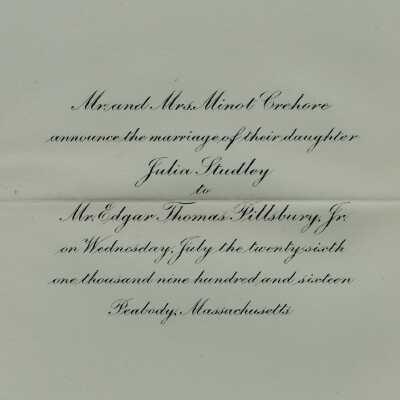 Mr. and Mrs. Minot Crehore
announce the marriage of their daughter
Julia Studley
to
Mr. Edgar Thomas Pillsbury, Jr.
on Wednesday, July the twenty sixth
one thousand nine hundred and sixteen
Peabody, Massachusetts